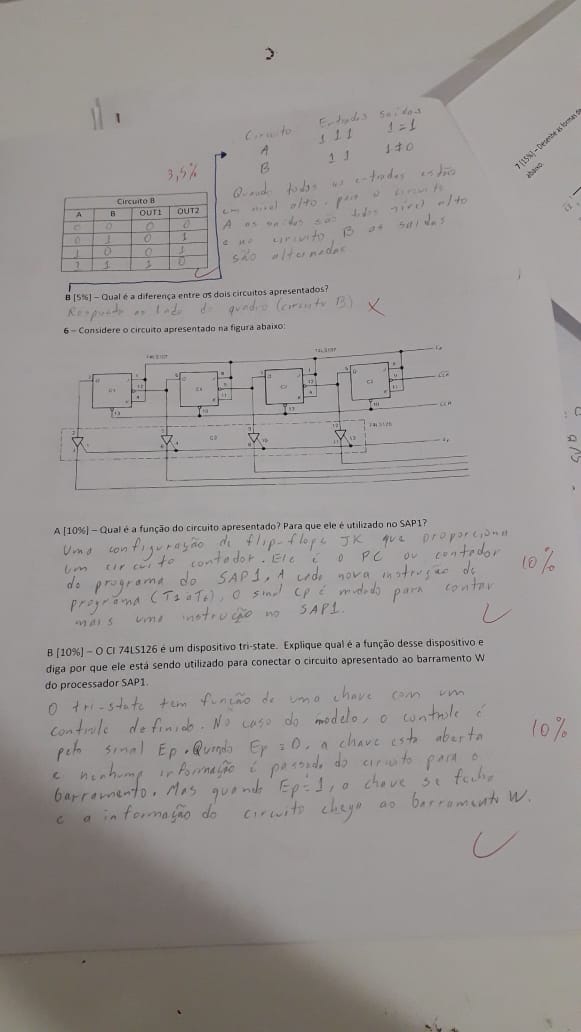 Circuito Entradas Saídas
A 1 1 1 1=1
B 1 1 1≠0
3,5%
Quando todas as entradas estão
em nível alto, para o circuito
A as saídas são todas nível alto
e no circuito B as saídas
são alternadas
Circuito B
A B OUT1 OUT2
0 0 0 0
0 1 0 1
1 0 0 1
1 1 1 0
B [5%] – Qual é a diferença entre os dois circuitos apresentados?
Resposta ao lado do quadro (circuito B)
6 – Considere o circuito apresentado na figura abaixo:
74LS107 74LS107
C1 C1 C2 C2
C3 74LS126
A [10%] – Qual é a função do circuito apresentado? Para que ele é utilizado no SAP1?
Uma configuração de flip-flops JK que proporciona
um circuito contador. Ele é o PC ou contador
do programa do SAP1, A cada nova instrução de
programa (T1 a T6), o sinal Cp é mudado para contar
mais uma instrução no SAP1.
10%
B [10%] – O CI 74LS126 é um dispositivo tri-state. Explique qual é a função desse dispositivo e
diga por que ele está sendo utilizado para conectar o circuito apresentado ao barramento W
do processador SAP1.
O tri-state tem função de uma chave com um
controle definido. No caso do modelo, o controle é
pelo sinal Ep. Quando Ep = 0, a chave esta aberta
e nenhuma informação é passada do circuito para o
barramento. Mas quando Ep=1, a chave se fecha
e a informação do circuito chega ao barramento W.
10%
7 [15%] – Desenhe as formas de
abaixo.